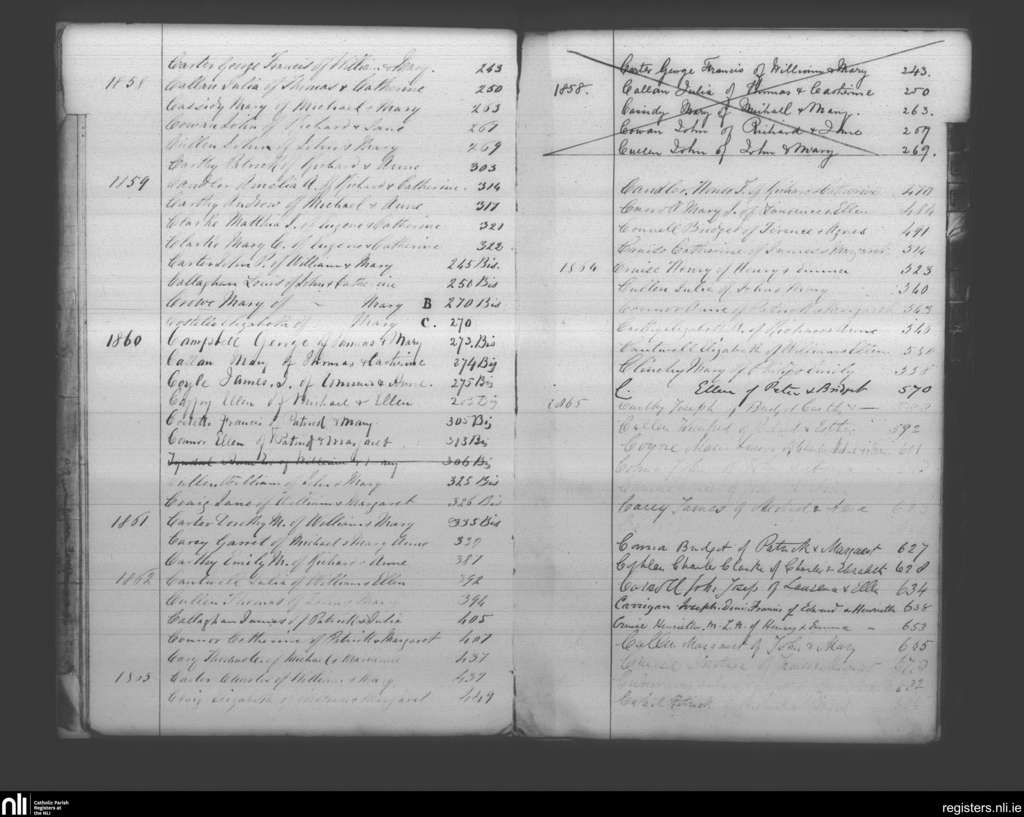 Carter George Francis of William & Mary. 243
1858 Callan Julia of Thomas & Catherine 250
Cassidy Mary of Michael & Mary 263
Cowan John of Richard & Jane 267
Cullen John of John & Mary 269
Carthy Patrick of Richard & Anne 303
1859 Candler Amelia A. of Richard & Catherine. 314
Carthy Andrew of Michael & Anne 317
Clarke Matthew J. of Eugene & Catherine 321
Clarke Mary C. of Eugene & Catherine 322
Carter John P. of William & Mary 245 Bis.
Callaghan Louis of John & Catherine 250 Bis
Crowe Mary of – Mary B 270 Bis
Costello Elizabeth of Mary C. 270
1860 Campbell George of James & Mary 273. Bis
Callan Mary of Thomas & Catherine 274 Bis
Coyle James. J. of & Anne. 275 Bis
Ellen of Michael & Ellen Bis
Costello Francis of Patrick & Mary 305 Bis
Connor Ellen of Patrick & Margaret 313 Bis
of William & Mary 306 Bis
Cullen William of John & Mary 325 Bis
Craig Jane of William & Margaret 326 Bis
1861 Carter Dorothy M. of William & Mary 335 Bis
Carey Garret of Michael & Mary Anne 339
Carthy Emily M. of Richard & Anne 381
1862 Cantwell Julia of William & Ellen 392
Cullen Thomas of & Mary 394
Callaghan James of Patrick & Julia 405
Connor Catherine of Patrick & Margaret 407
Cary of Michael & Marianne 437
1863 Carter Charles of William & Mary 439
Craig Elizabeth of William & Margaret 449
Carter George Francis of William & Mary 243.
1858. Callan Julia of Thomas & Catherine 250
Cassidy Mary of Michael & Mary. 263.
Cowan John of Richard & Jane 267
Cullen John of John & Mary 269.
Candler of Richard & Catherine 470
Mary J. of Laurence & Ellen 484
Connell Bridget of Terence & Agnes 491
Cruise Catherine of James & Margaret 514
1864 Cruise Henry of Henry & Emma 523
Cullen Julia of John & Mary 540
Connor Anne of Patrick & Margaret 543
Carthy Elizabeth A. of Richard & Anne 545
Cantwell Elizabeth of William & Ellen 558
Clinchy Mary of Philip & Emily 558
C. Ellen of Peter & Bridget 570
1865 Carthy Joseph of Bridget Carthy & —
Cullen of & Esther 592
Coyne Mary
Carey James of &
Connor Bridget of Patrick & Margaret 627
Coghlan Charles Clarke of Charles & Elizabeth 628
John Joseph of Laurence & Ellen 634
Carrigan Joseph Francis of Edward & Henrietta 638
Cruise Henrietta. M. L. A. of Henry & Emma – 653
Cullen Margaret of John & Mary 665
Cahill Patrick
nli Catholic Parish
Registers at
the NLI
registers.nli.ie